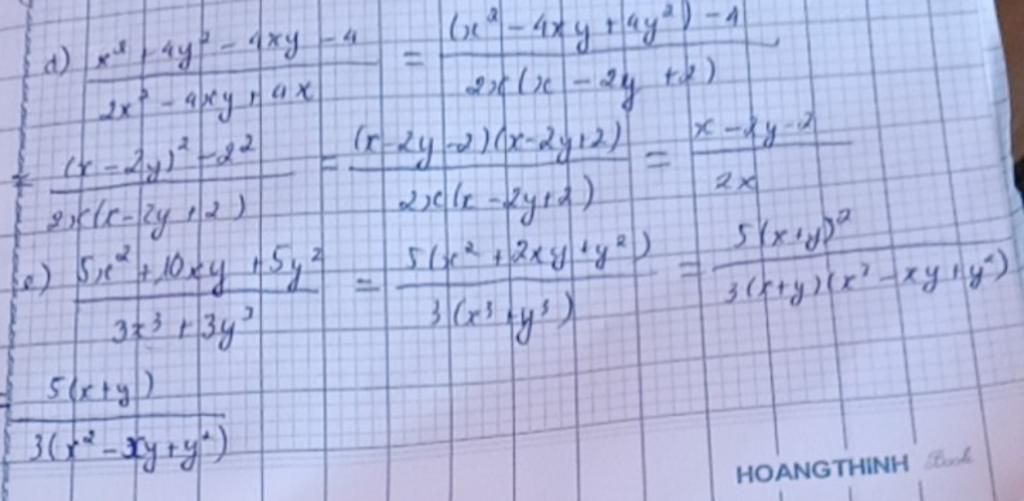 d) (x² + 4y² - 4xy - 4) / (2x² - 4xy + 4x) = ((x² - 4xy + 4y²) - 4) / (2x(x - 2y + 2))
= ((x - 2y)² - 2²) / (2x(x - 2y + 2)) = ((x - 2y - 2)(x - 2y + 2)) / (2x(x - 2y + 2)) = (x - 2y - 2) / (2x)
e) (5x² + 10xy + 5y²) / (3x³ + 3y³) = (5(x² + 2xy + y²)) / (3(x³ + y³)) = (5(x + y)²) / (3(x + y)(x² - xy + y²))
= (5(x + y)) / (3(x² - xy + y²))
HOANGTHINH Book